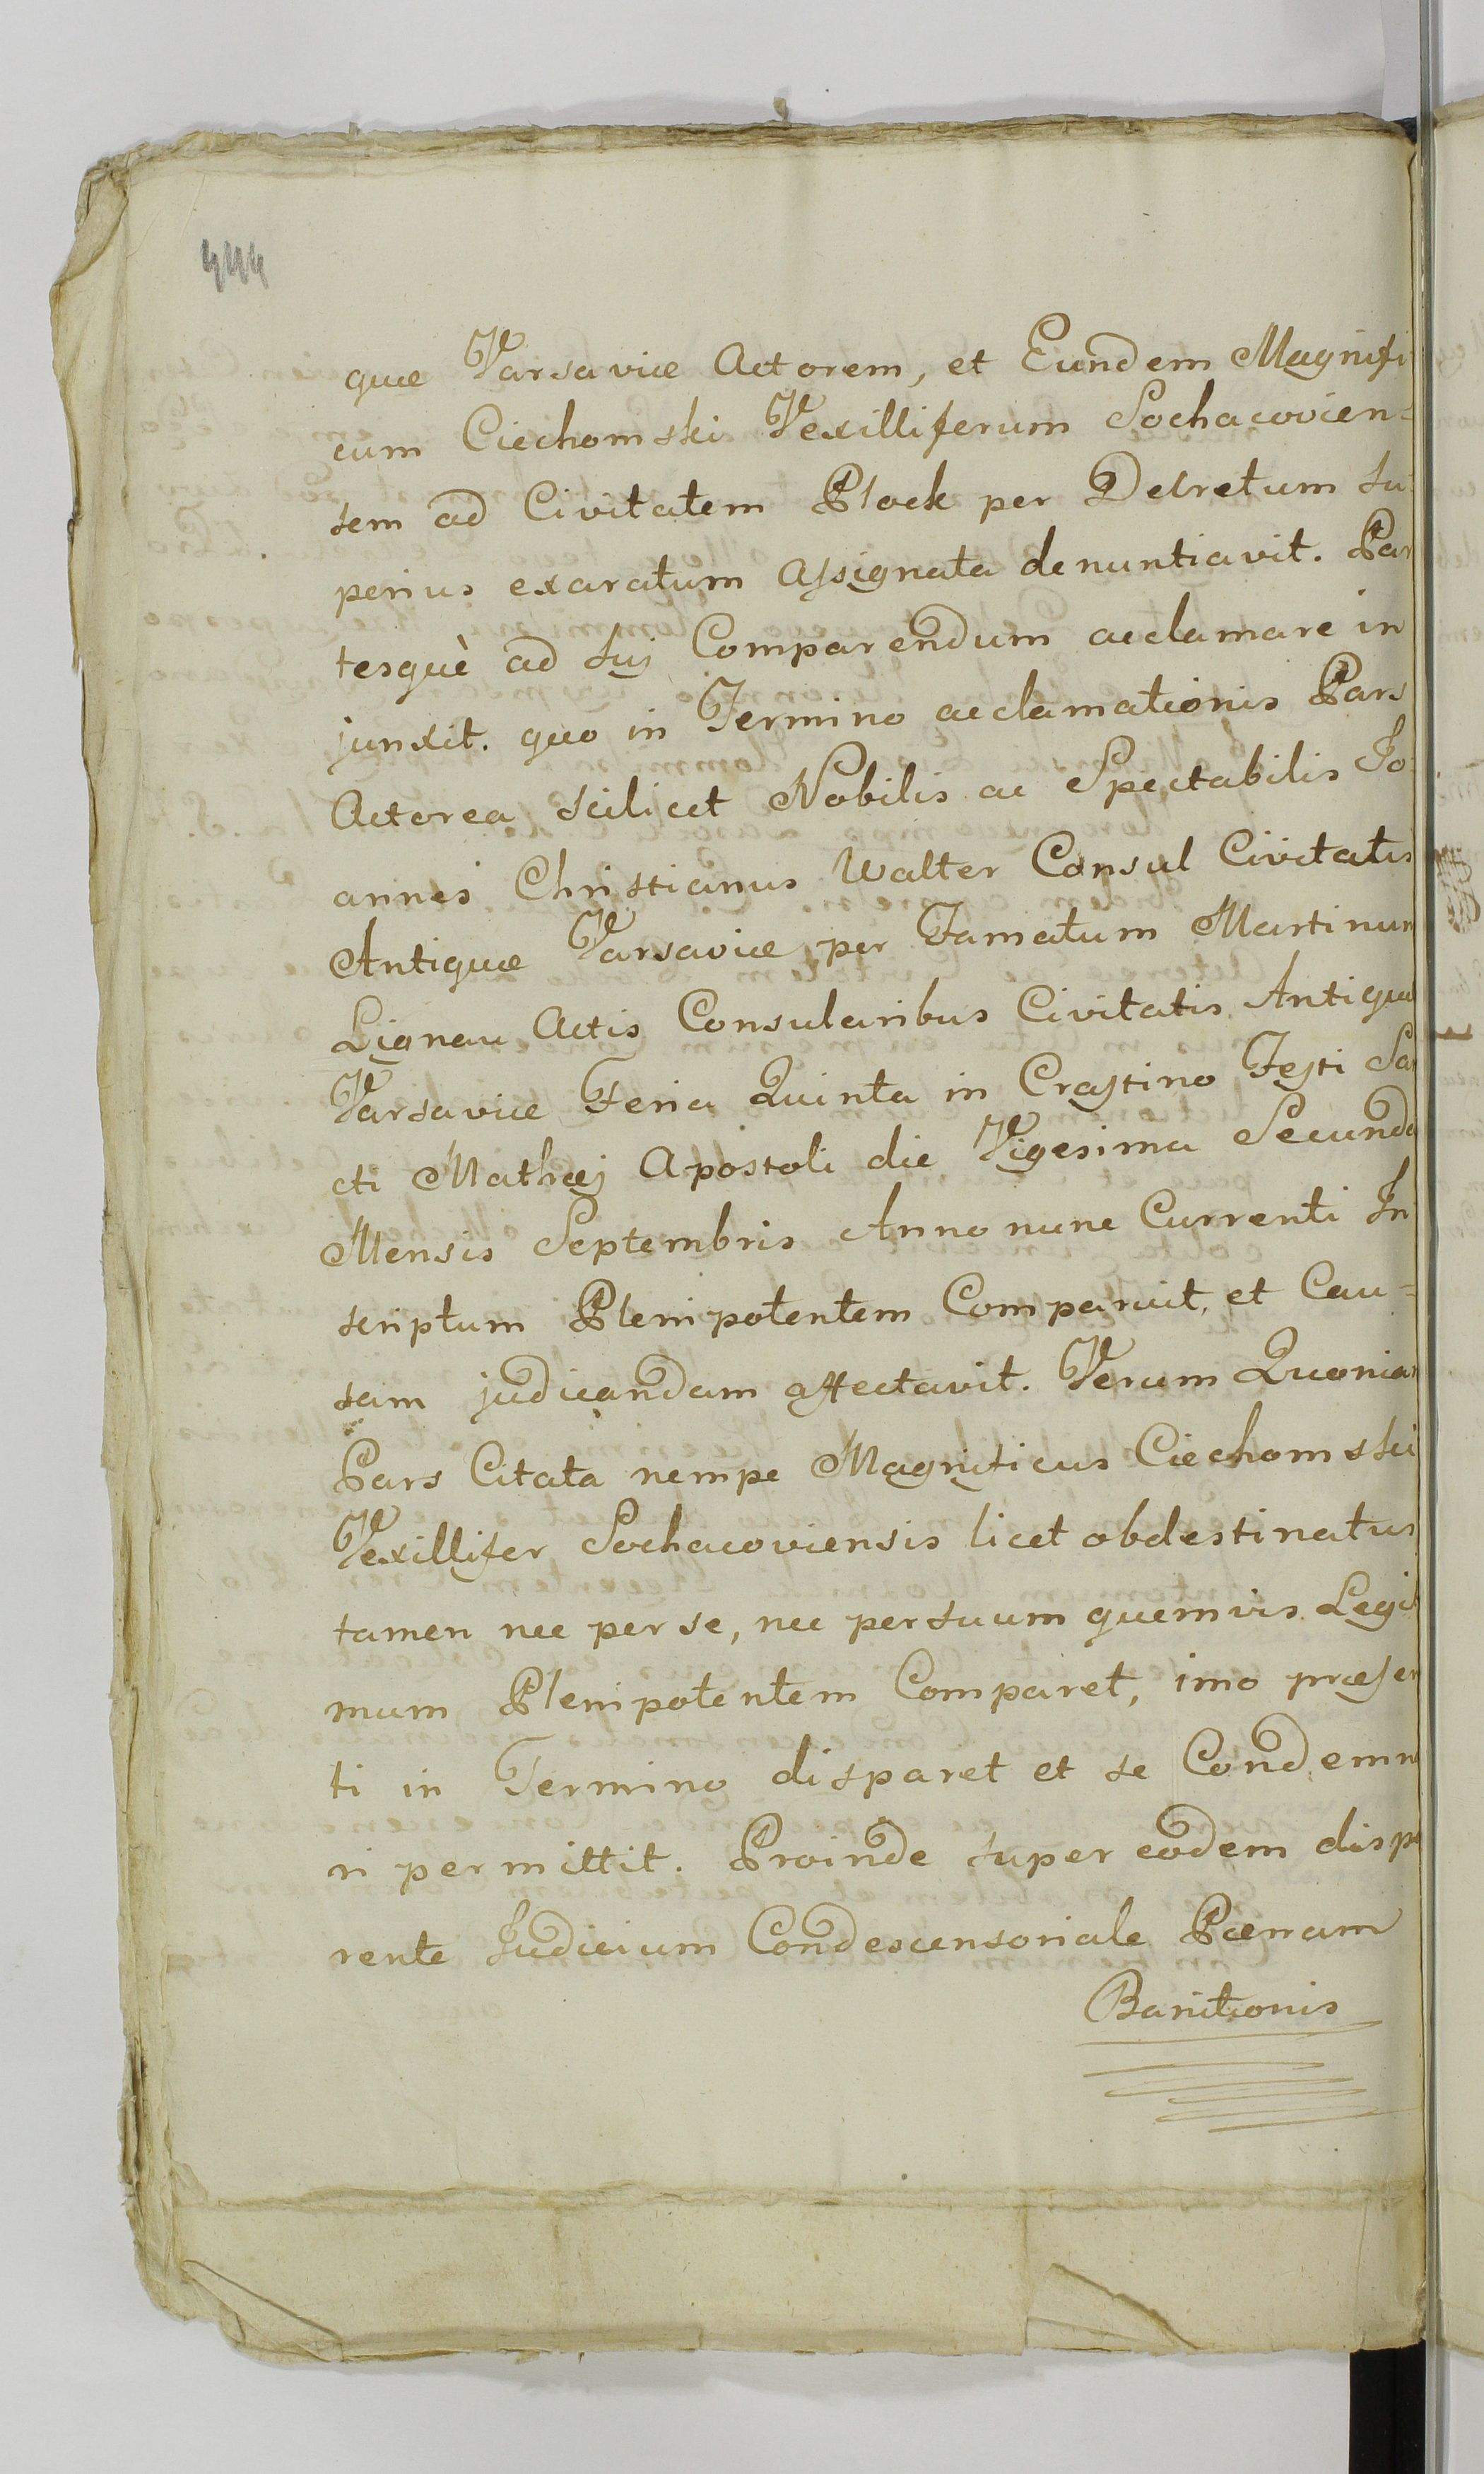 444
quæ Varsaviæ Actorem, et Eundem Magnifi
cum Ciechomski Vexilliferum Sochacovien=
sem ad Civitatem Plock per Decretum Su
perius exaratum assignata denuntiavit. Par
tesquè ad sui Comparendum acclamare in
junxit. quo in Termino acclamationis Pars
Actorea scilicet Nobilis ac Spectabilis Jo
annes Christianus Walter Consul Civitatis
Antiquæ Varsaviæ per Famatum Martinum
Lignau Actis Consularibus Civitatis Antiquæ
Varsaviæ Feria Quinta in Crastino Festi San
cti Mathæi Apostoli die Vigesima Secunda
Mensis Septembris Anno nunc Currenti In
scriptum Plenipotentem Comparuit, et Cau=
sam judicandam affectavit. Verum Quoniam
Pars Citata nempe Magnificus Ciechomski
Vexillifer Sochacoviensis licet obdestinatus
tamen nec per se, nec per suum quemvis Legit
mum Plenipotentem Comparet, imo præsen
ti in Termino disparet et se Condemna
ri permittit. Proinde super eodem dispa
rente Judicium Condescensoriale Pœnam
Banitionis